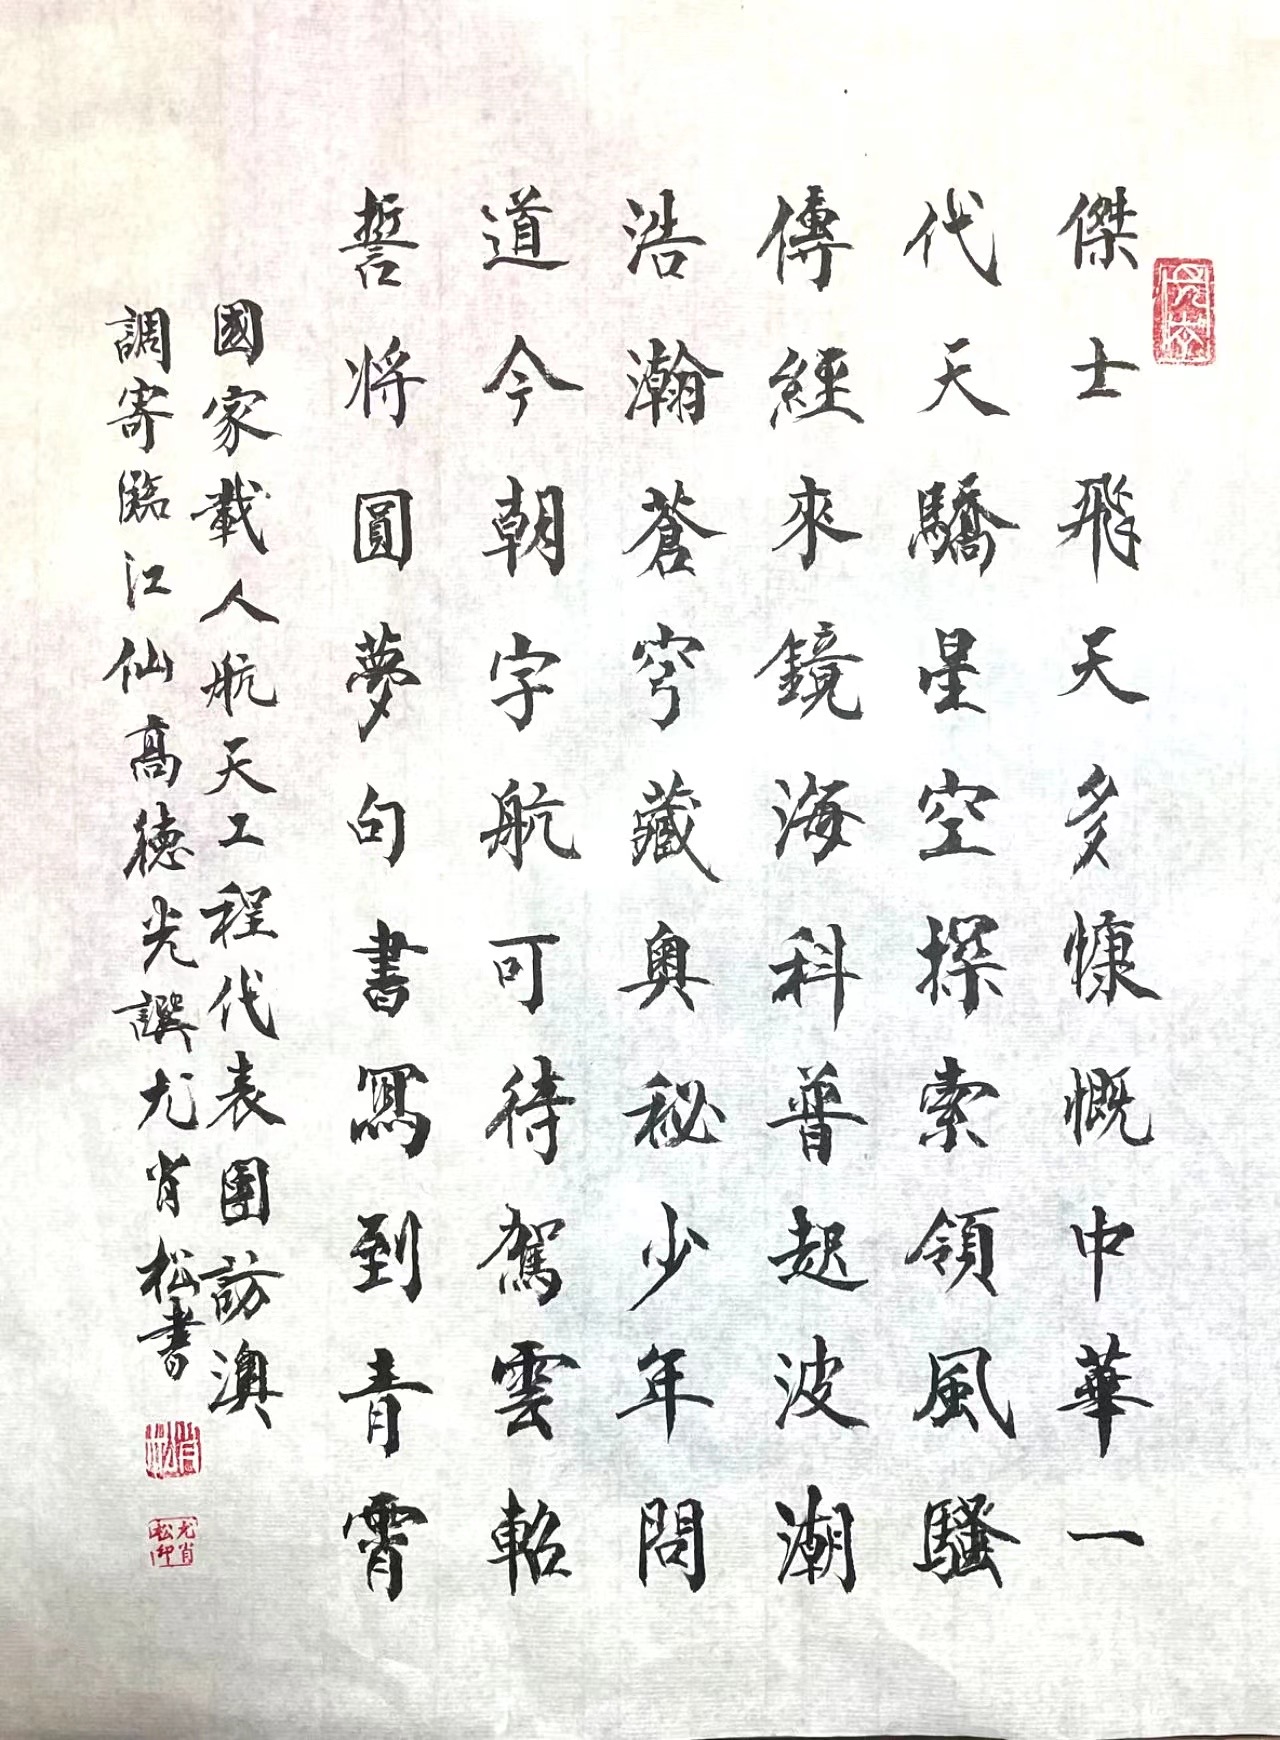 傑士飛天多慷慨中華一
代天驕星空探索領風騷
傳經來鏡海科普起波潮
浩瀚蒼穹藏奧秘少年問
道今朝字航可待駕雲軺
誓將圓夢句書寫到青霄
國家載人航天工程代表團訪澳
調寄臨江仙高德光譔尤肖松書
肖松
尤肖松印